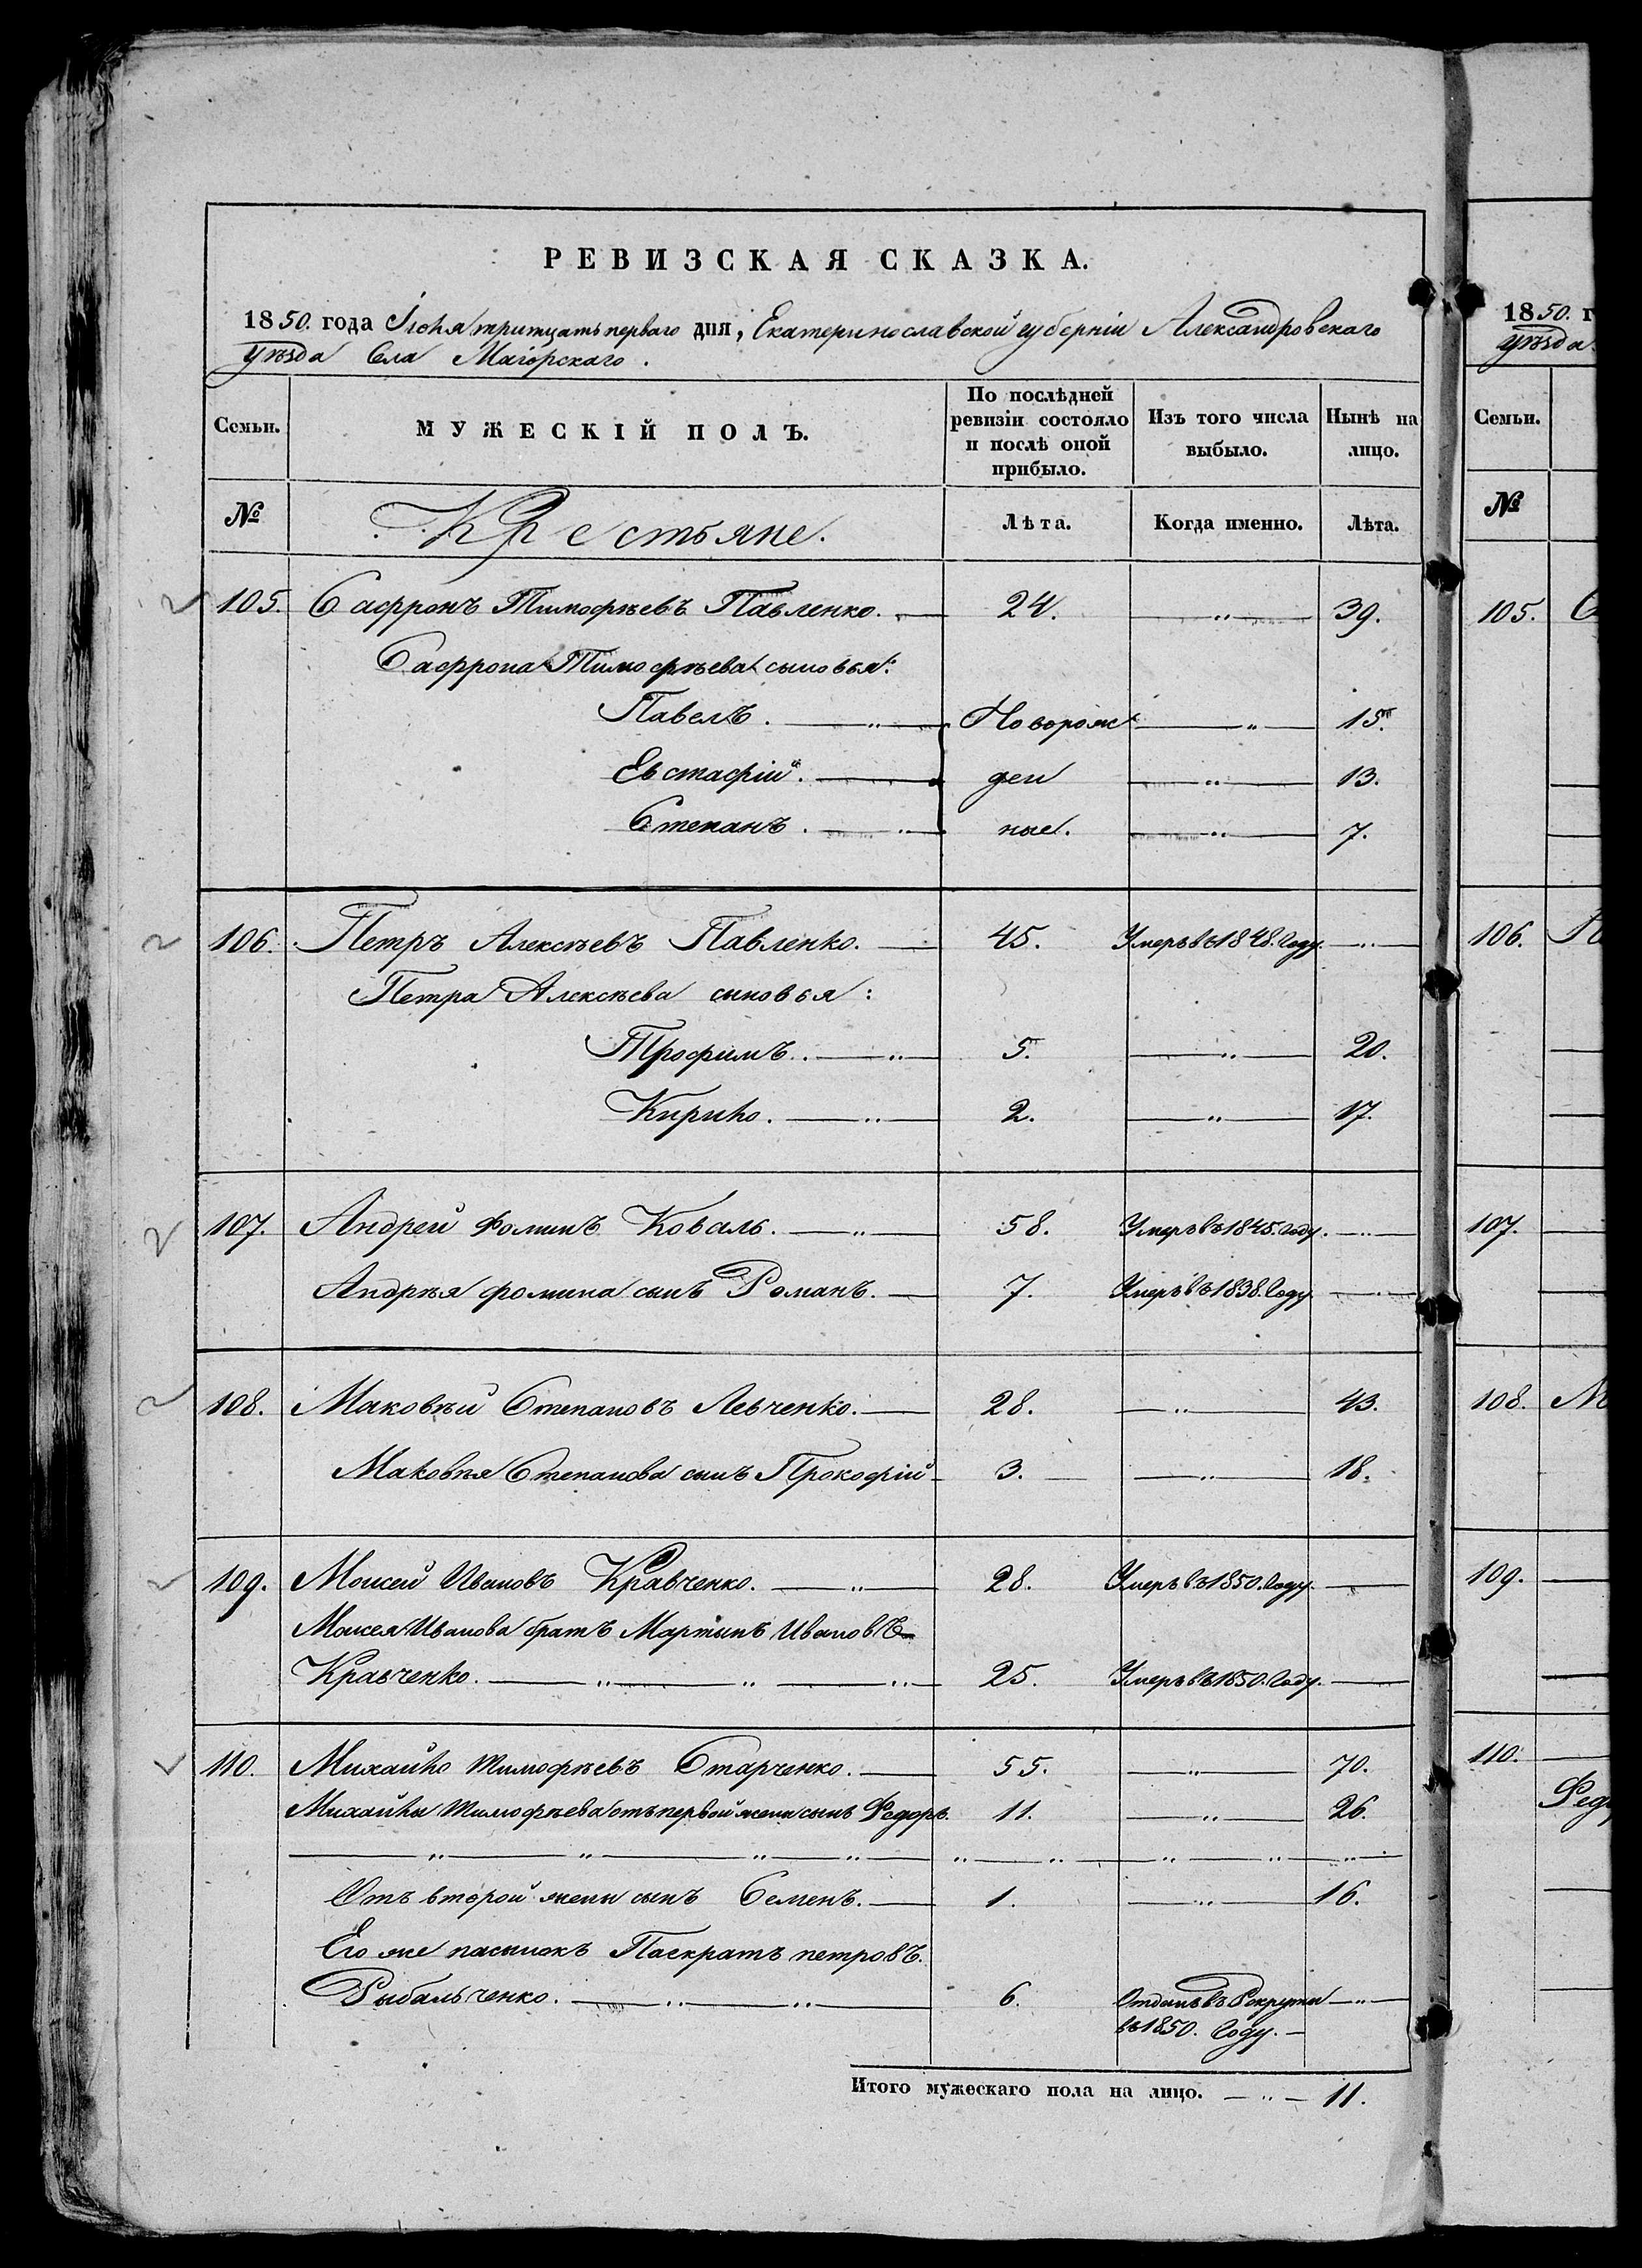 РЕВИЗСКАЯ СКАЗКА.
1850. года Іюля тритцать перваго дня, Екатеринославской губерніи Александровскаго
уѣзда Села Маіорскаго.
Семьи.
МУЖЕСКІЙ ПОЛЪ.
По послѣдней ревизіи состояло и послѣ оной прибыло.
Изъ того числа выбыло.
Нынѣ на лицо.
№
Крестьяне.
Лѣта.
Когда именно.
Лѣта.
105. Сафронъ Тимофѣевъ Павленко. — 24. — „ — 39.
Сафрона Тимофѣева сыновья:
Павелъ. — „ — Новорож — „ — 15.
Евстафій. — ден — „ — 13.
Степанъ. — „ — ные. — „ — 7.
106. Петръ Алексѣевъ Павленко. — 45. Умеръ въ 1848. Году. — „ —
Петра Алексѣева сыновья:
Трофимъ. — „ — 5. — „ — 20.
Кирило. — „ — 2. — „ — 17.
107. Андрей Фоминъ Коваль. — „ — 58. Умеръ въ 1845. Году. — „ —
Андрѣя фомина сынъ Романъ. — 7. Умеръ въ 1838. Году — „ —
108. Маковѣй Степановъ Левченко. — 28. — „ — 43.
Маковѣя Степанова сынъ Прокофій — 3. — „ — 18.
109. Моисей Ивановъ Кравченко. — „ — 28. Умеръ въ 1850. Году. — „ —
Моисея Иванова братъ Мартынъ Ивановъ
Кравченко. — „ — „ — „ — 25. Умеръ въ 1850. Году. —
110. Михайло Тимофѣевъ Старченко. — 55. — „ — 70.
Михайлы Тимофѣева отъ первой жены сынъ Федоръ. 11. — „ — 26.
— „ — „ — „ — „ — „ — „ — „ — „ — „ —
Отъ второй жены сынъ Семенъ. — 1. — „ — 16.
Его же пасынокъ Панкратъ петровъ.
Рыбальченко. — „ — „ — 6. Отданъ въ Рекруты — „ —
въ 1850. Году. —
Итого мужескаго пола на лицо. — „ — 11.
1850. г
уѣзда
Семьи.
№
105. С
106. П
107.
108. М
109.
110.
Фед